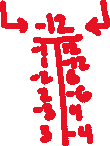 -12
-1 12
1 -12
-2 6
2 -6
-3 4
3 -4